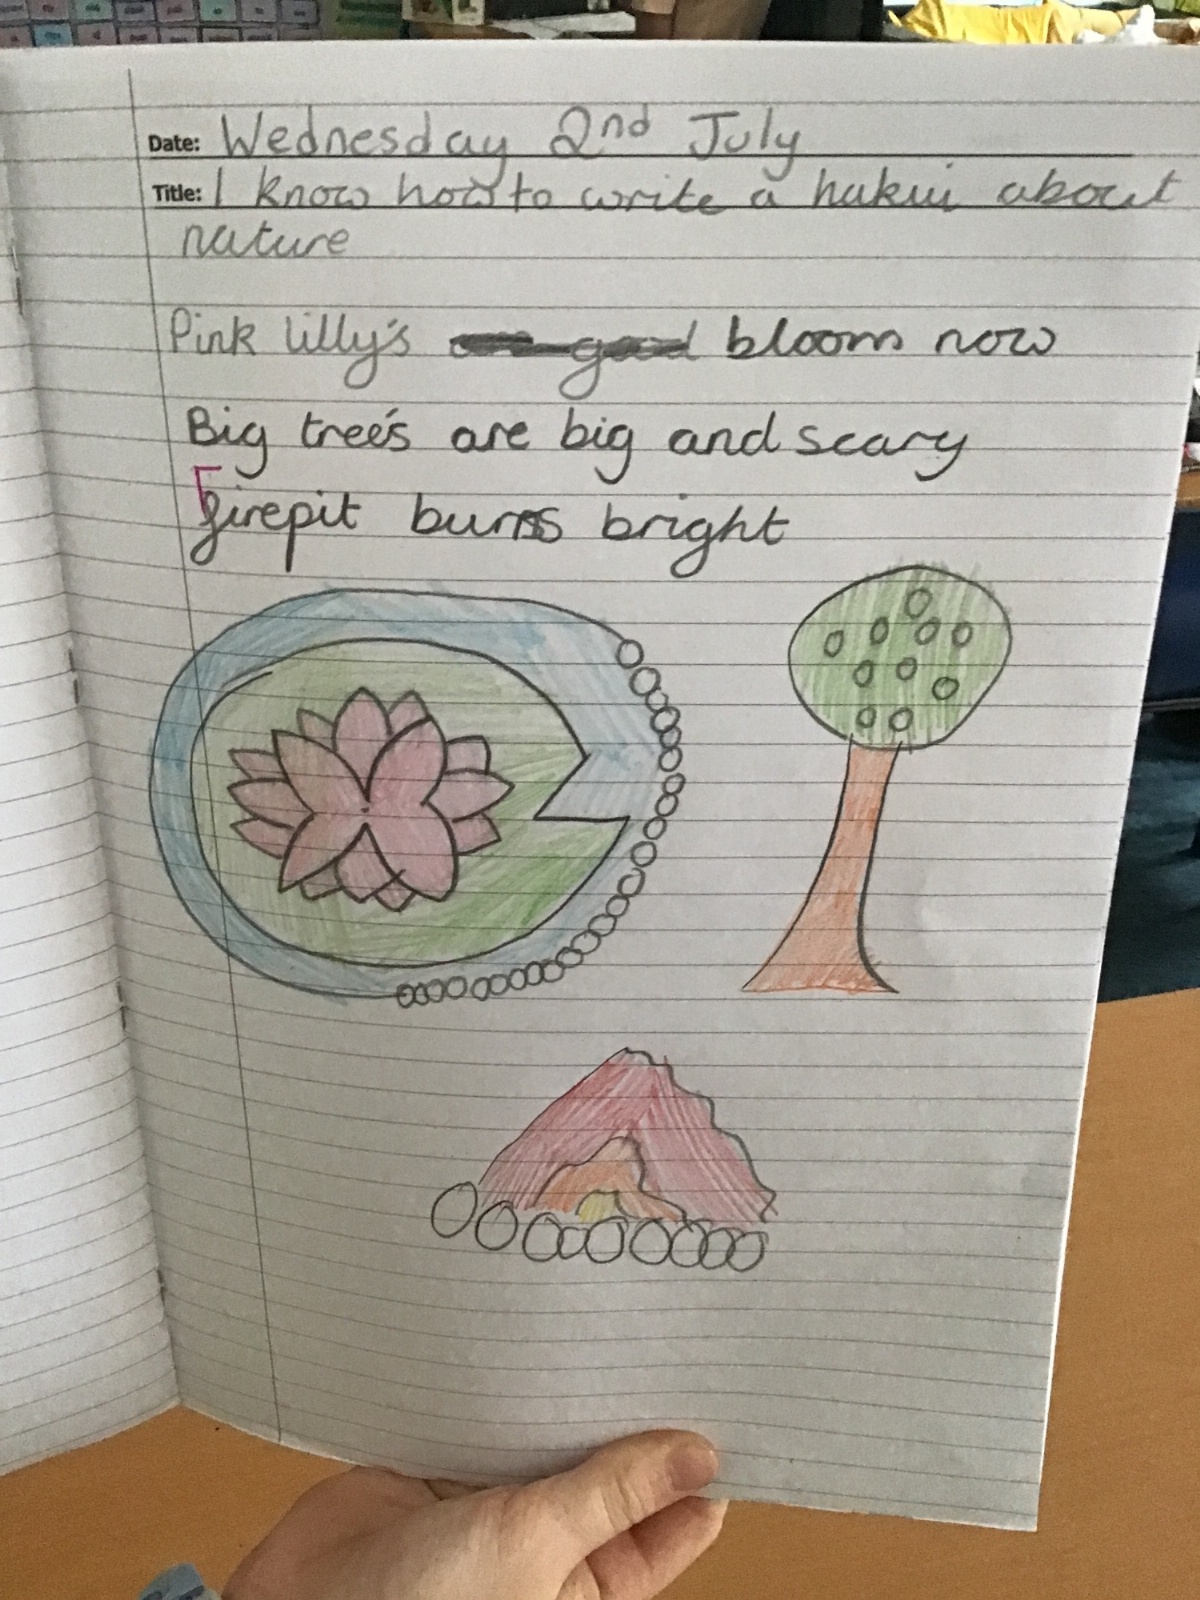 Date: Wednesday 2nd July
Title: I know how to write a hakui about
nature
Pink lilly's good bloom now
Big tree's are big and scary
firepit burns bright